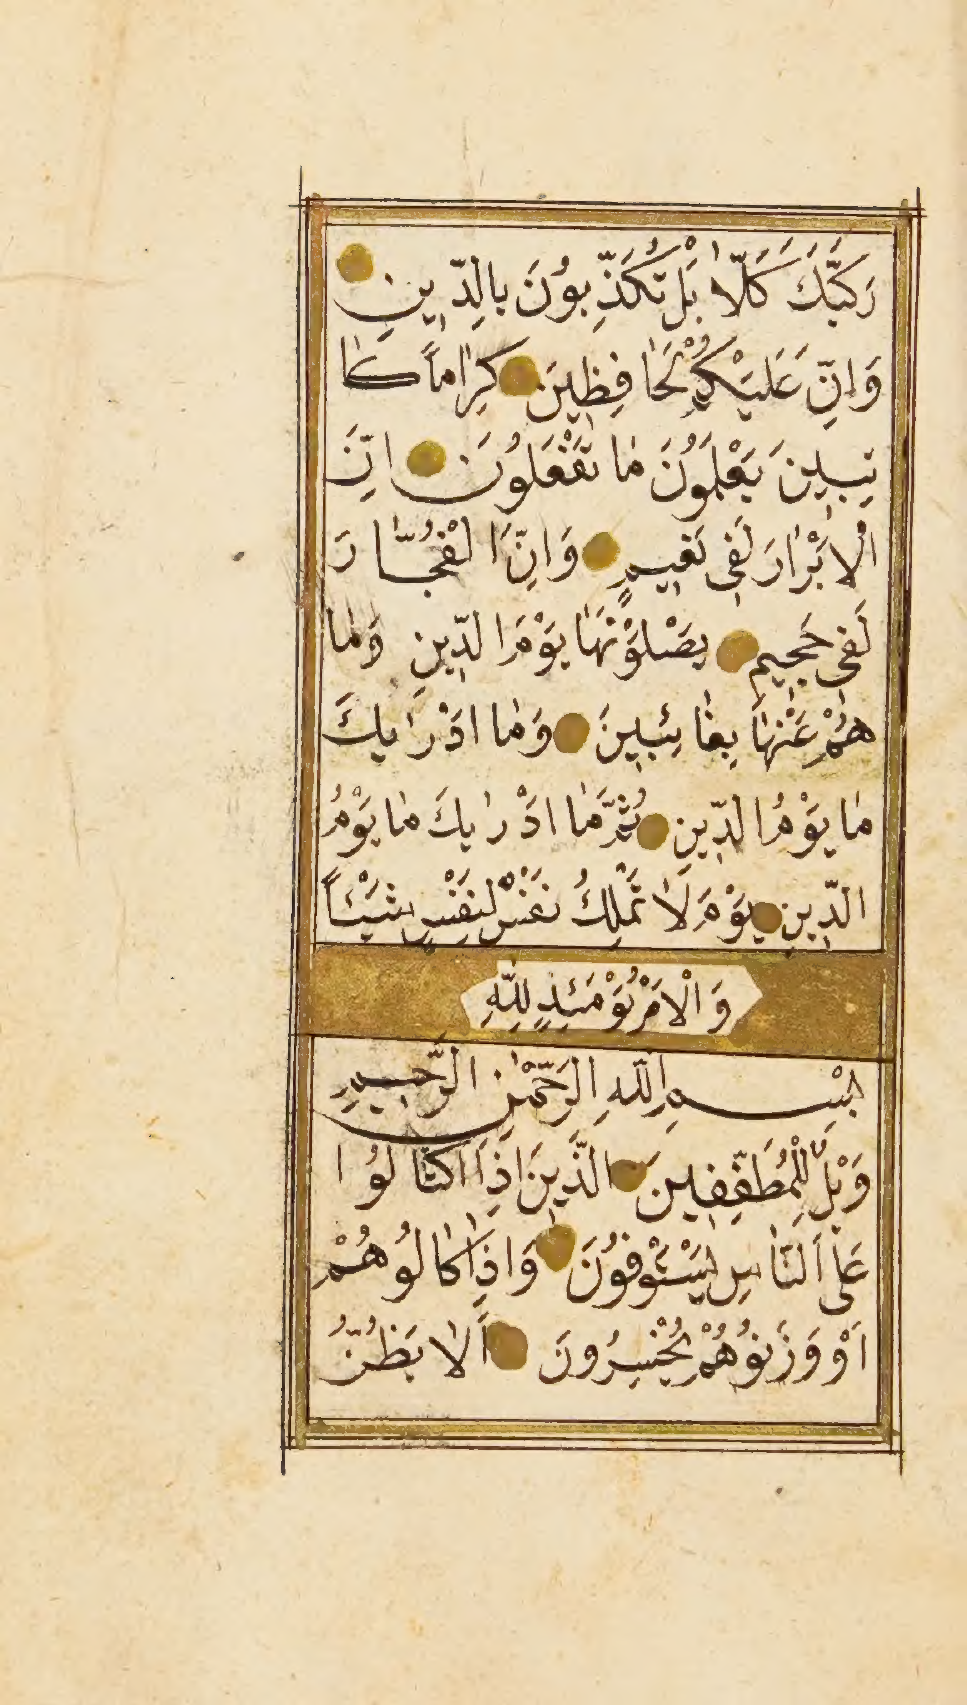 رَكَّبَكَ كَلَّا بَلْ تُكَذِّبُونَ بِالدِّينِ
وَاِنَّ عَلَيْكُمْ لَحَافِظِينَ كِرَاماً كَا
تِبِينَ يَعْلَمُونَ مَا تَفْعَلُونَ اِنَّ
الْاَبْرَارَ لَفِى نَعِيمٍ وَاِنَّ الْفُجَّارَ
لَفِى جَحِيمٍ يَصْلَوْنَهَا يَوْمَ الدِّينِ وَمَا
هُمْ عَنْهَا بِغَائِبِينَ وَمَا اَدْرَايكَ
مَا يَوْمُ الدِّينِ ثُمَّ مَا اَدْرَايكَ مَا يَوْمُ
الدِّينِ يَوْمَ لَا تَمْلِكُ نَفْسٌ لِنَفْسٍ شَيْئاً
وَالْاَمْرُ يَوْمَئِذٍ لِلّٰهِ
بِسْمِ اللّٰهِ الرَّحْمٰنِ الرَّحِيمِ
وَيْلٌ لِلْمُطَفِّفِينَ الَّذِينَ اِذَا اكْتَالُوا
عَلَى النَّاسِ يَسْتَوْفُونَ وَاِذَا كَالُوهُمْ
اَوْ وَزَنُوهُمْ يُخْسِرُونَ اَلَا يَظُنُّ